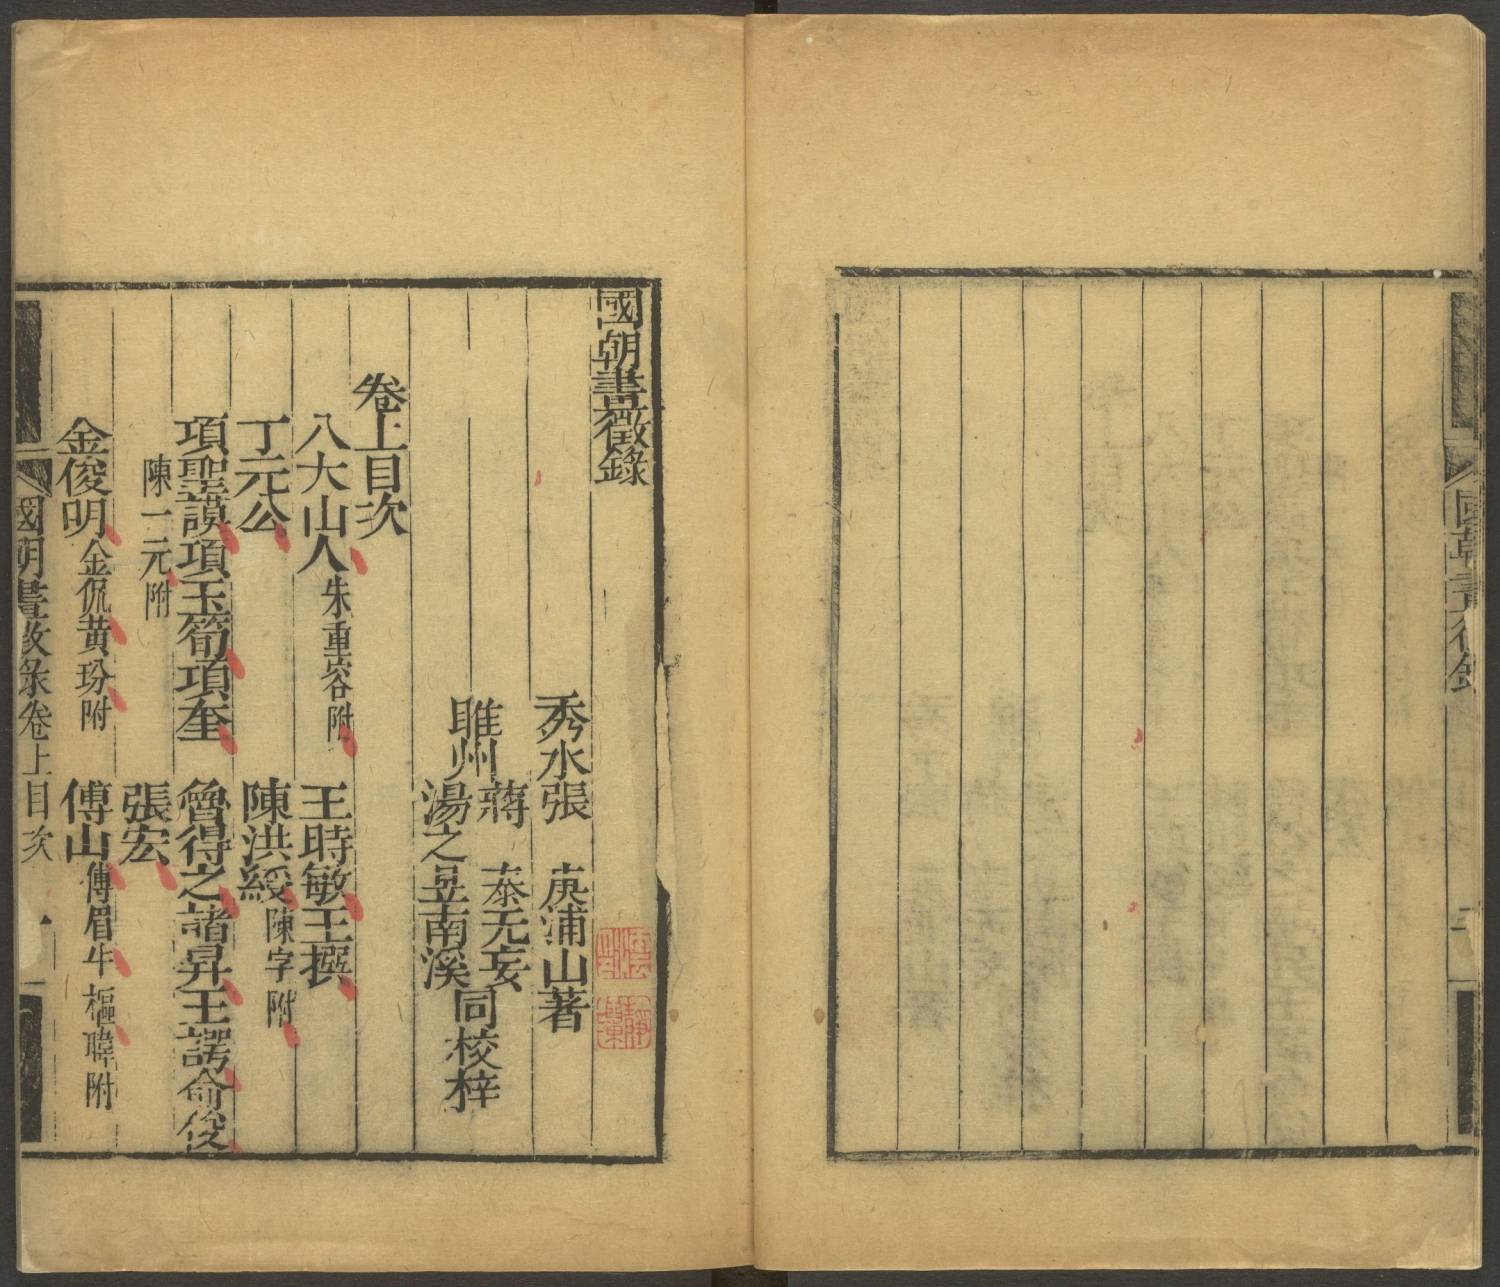 國朝畫徵錄
三
國朝畫徵錄
秀水張 庚浦山著
睢州
蔣 泰无妄
湯之昱南溪
同校梓
卷上目次
八大山人朱重容附 王時敏王撰
丁元公 陳洪綬陳字附
項聖謨項玉筍項奎 魯得之諸昇王諤俞俊
陳一元附 張宏
金俊明金侃黃玢附 傅山傅眉牛樞暐附
國朝畫徵錄卷上目次 一